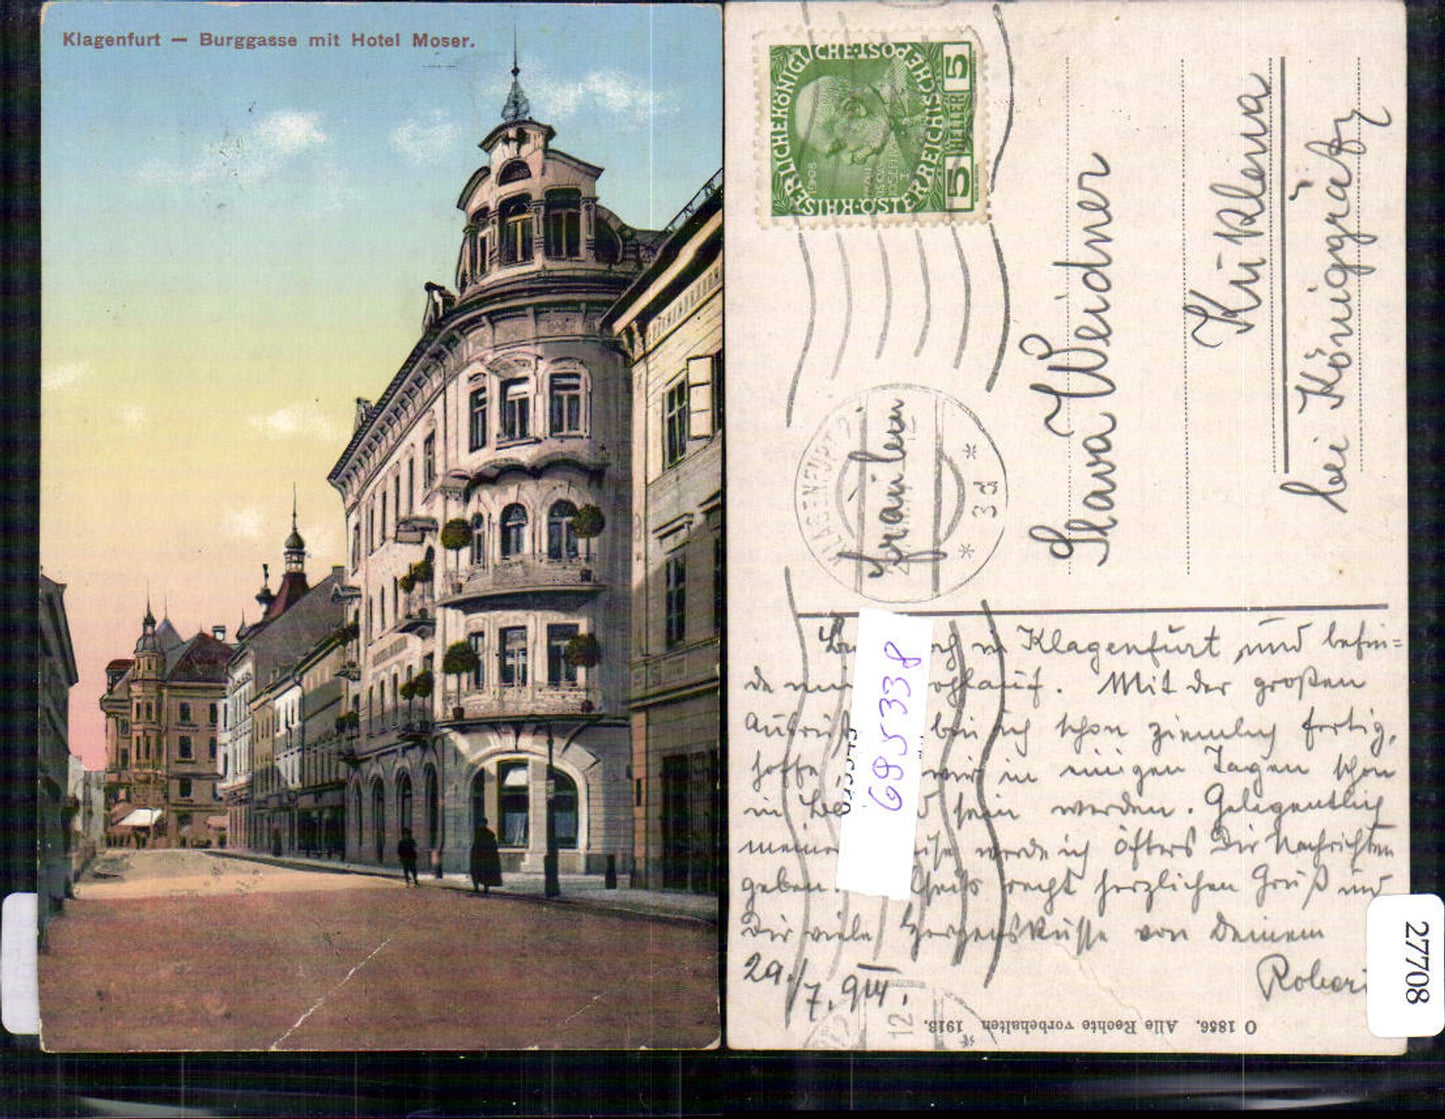 Klagenfurt — Burggasse mit Hotel Moser.
KAISERLICHE KÖNIGLICHE ÖSTERREICHISCHE POST
5 HELLER 5
1908
KLAGENFURT 2
* 3d *
Fräulein
Slava Weidner
Kuklena
bei Königgrätz
noch in Klagenfurt und befin=
de mich wohlauf. Mit der großen
bin ich schon ziemlich fertig,
hoffe wir in einigen Tagen schon
in sein werden. Gelegentlich
meiner werde ich öfters Dir Nachrichten
geben. recht herzlichen Gruß und
Dir viele Herzensküsse von Deinem
29./7. 914. Robert
O 1856. Alle Rechte vorbehalten 1913.
695338
27708
12